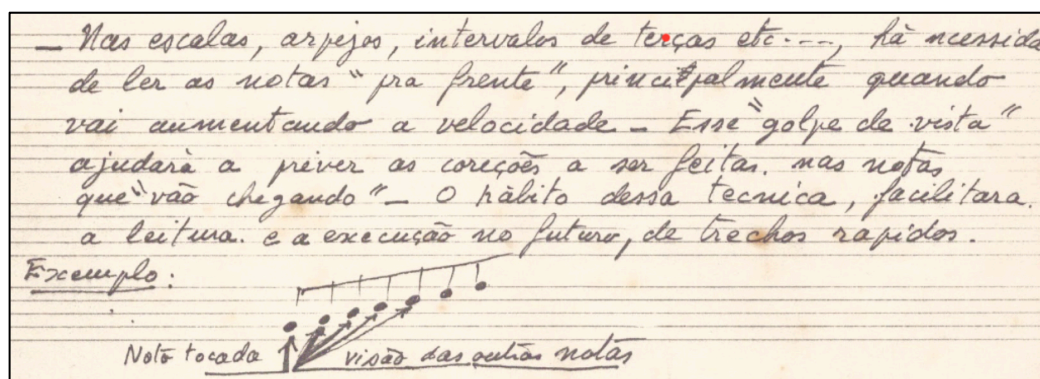 _ Nas escalas, arpejos, intervalos de terças etc---, hà ncessida
de ler as notas "pra frente", principalmente quando
vai aumentando a velocidade _ Esse "golpe de vista"
ajudarà a prever as coreções a ser feitas. nas notas
que "vão chegando" _ O hàbito dessa tecnica, facilitara.
a leitura. e a execução no futuro, de trechos rapidos.
Exemplo:
Nota tocada visão das outras notas